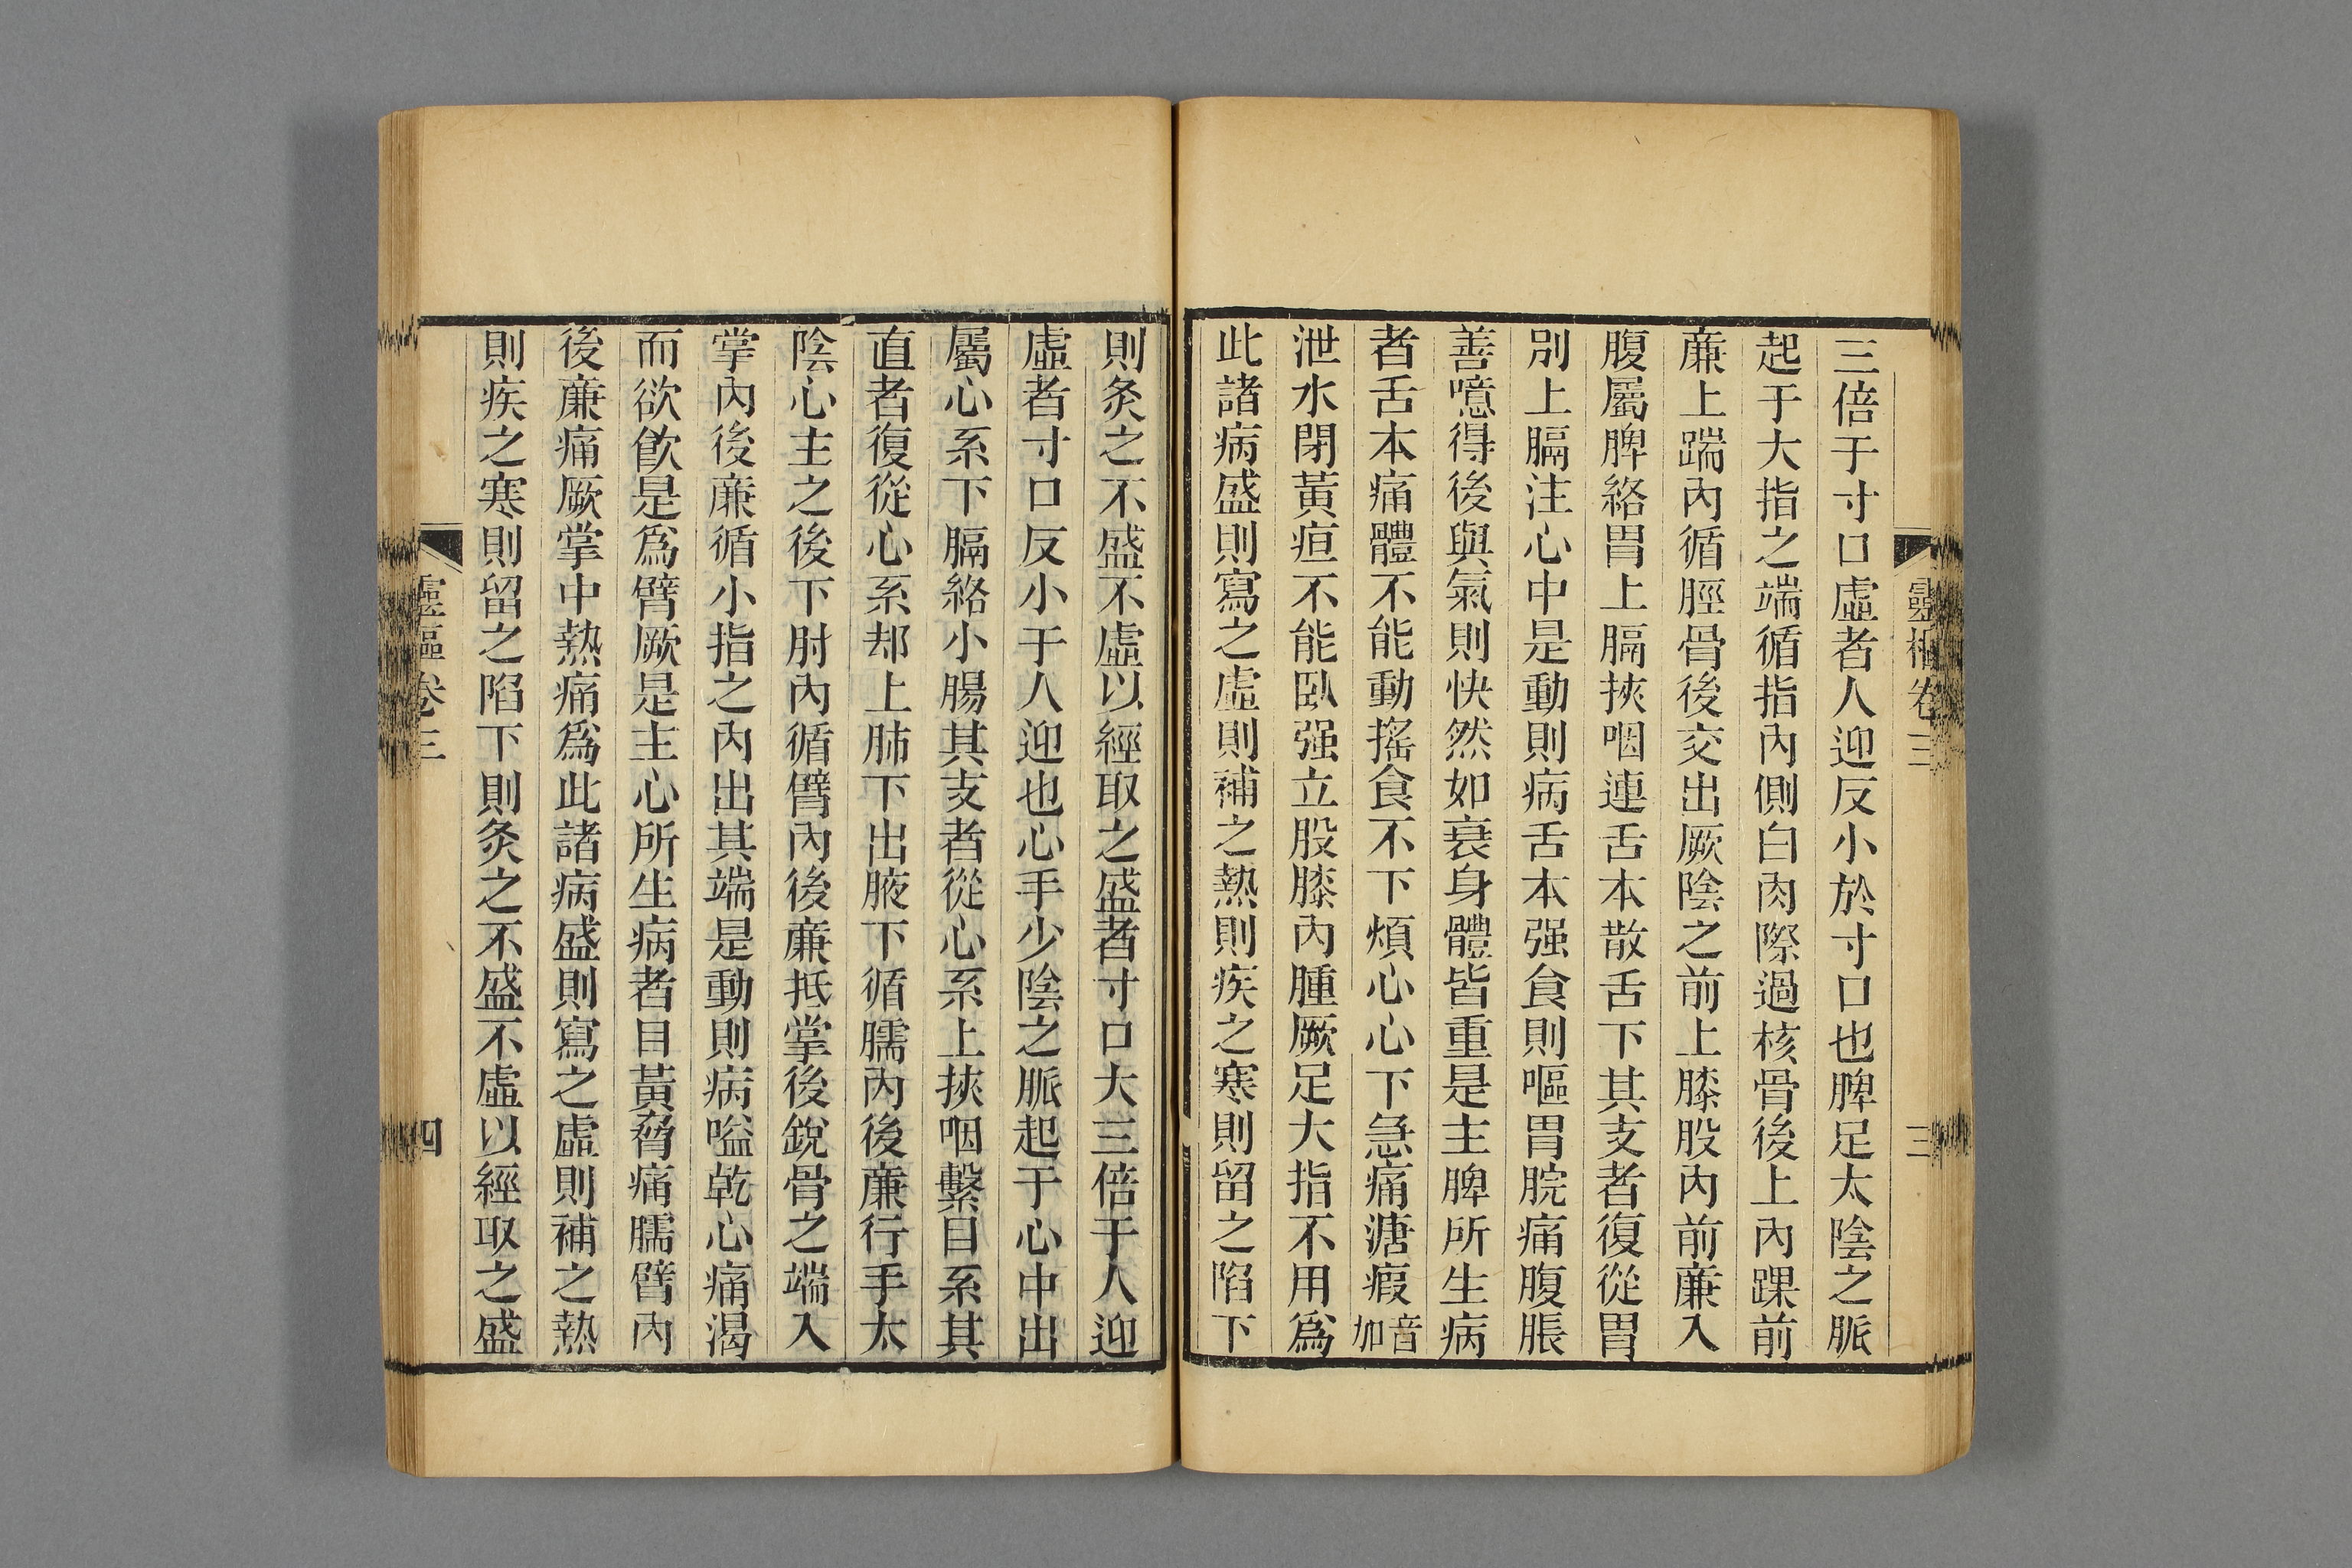 靈樞卷三
三
三倍于寸口虛者人迎反小於寸口也脾足太陰之脈
起于大指之端循指內側白肉際過核骨後上內踝前
廉上踹內循脛骨後交出厥陰之前上膝股內前廉入
腹屬脾絡胃上膈挾咽連舌本散舌下其支者復從胃
別上膈注心中是動則病舌本强食則嘔胃脘痛腹脹
善噫得後與氣則快然如衰身體皆重是主脾所生病
者舌本痛體不能動搖食不下煩心心下急痛溏瘕音加
泄水閉黃疸不能臥强立股膝內腫厥足大指不用爲
此諸病盛則寫之虛則補之熱則疾之寒則留之陷下
則灸之不盛不虛以經取之盛者寸口大三倍于人迎
虛者寸口反小于人迎也心手少陰之脈起于心中出
屬心系下膈絡小腸其支者從心系上挾咽繫目系其
直者復從心系却上肺下出腋下循臑內後廉行手太
陰心主之後下肘內循臂內後廉抵掌後銳骨之端入
掌內後廉循小指之內出其端是動則病嗌乾心痛渴
而欲飮是爲臂厥是主心所生病者目黃脅痛臑臂內
後廉痛厥掌中熱痛爲此諸病盛則寫之虛則補之熱
則疾之寒則留之陷下則灸之不盛不虛以經取之盛
靈樞卷三
四